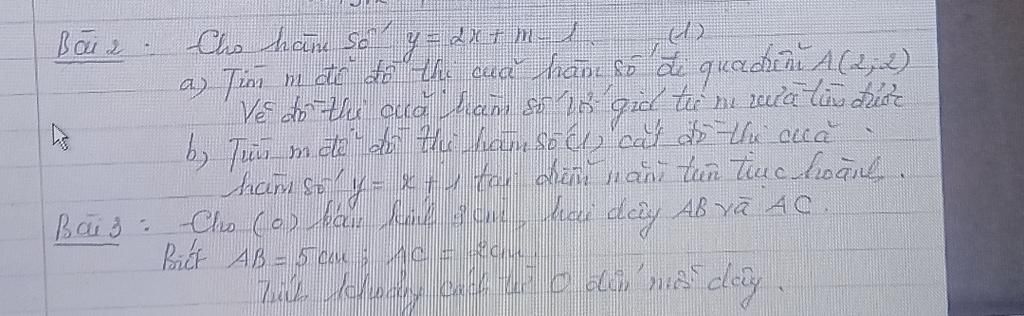 Bài 2 : Cho hàm số y = 2x + m - 1. (1)
a) Tìm m để đồ thị của hàm số đi qua điểm A(2;2)
Vẽ đồ thị của hàm số với giá trị m vừa tìm được
b) Tìm m để đồ thị hàm số (1) cắt đồ thị của
hàm số y = x + 1 tại điểm nằm trên trục hoành.
Bài 3 : Cho (O) bán kính cm, hai dây AB và AC.
Biết AB = 5 cm ; AC = cm
Tính khoảng cách từ O đến mỗi dây.